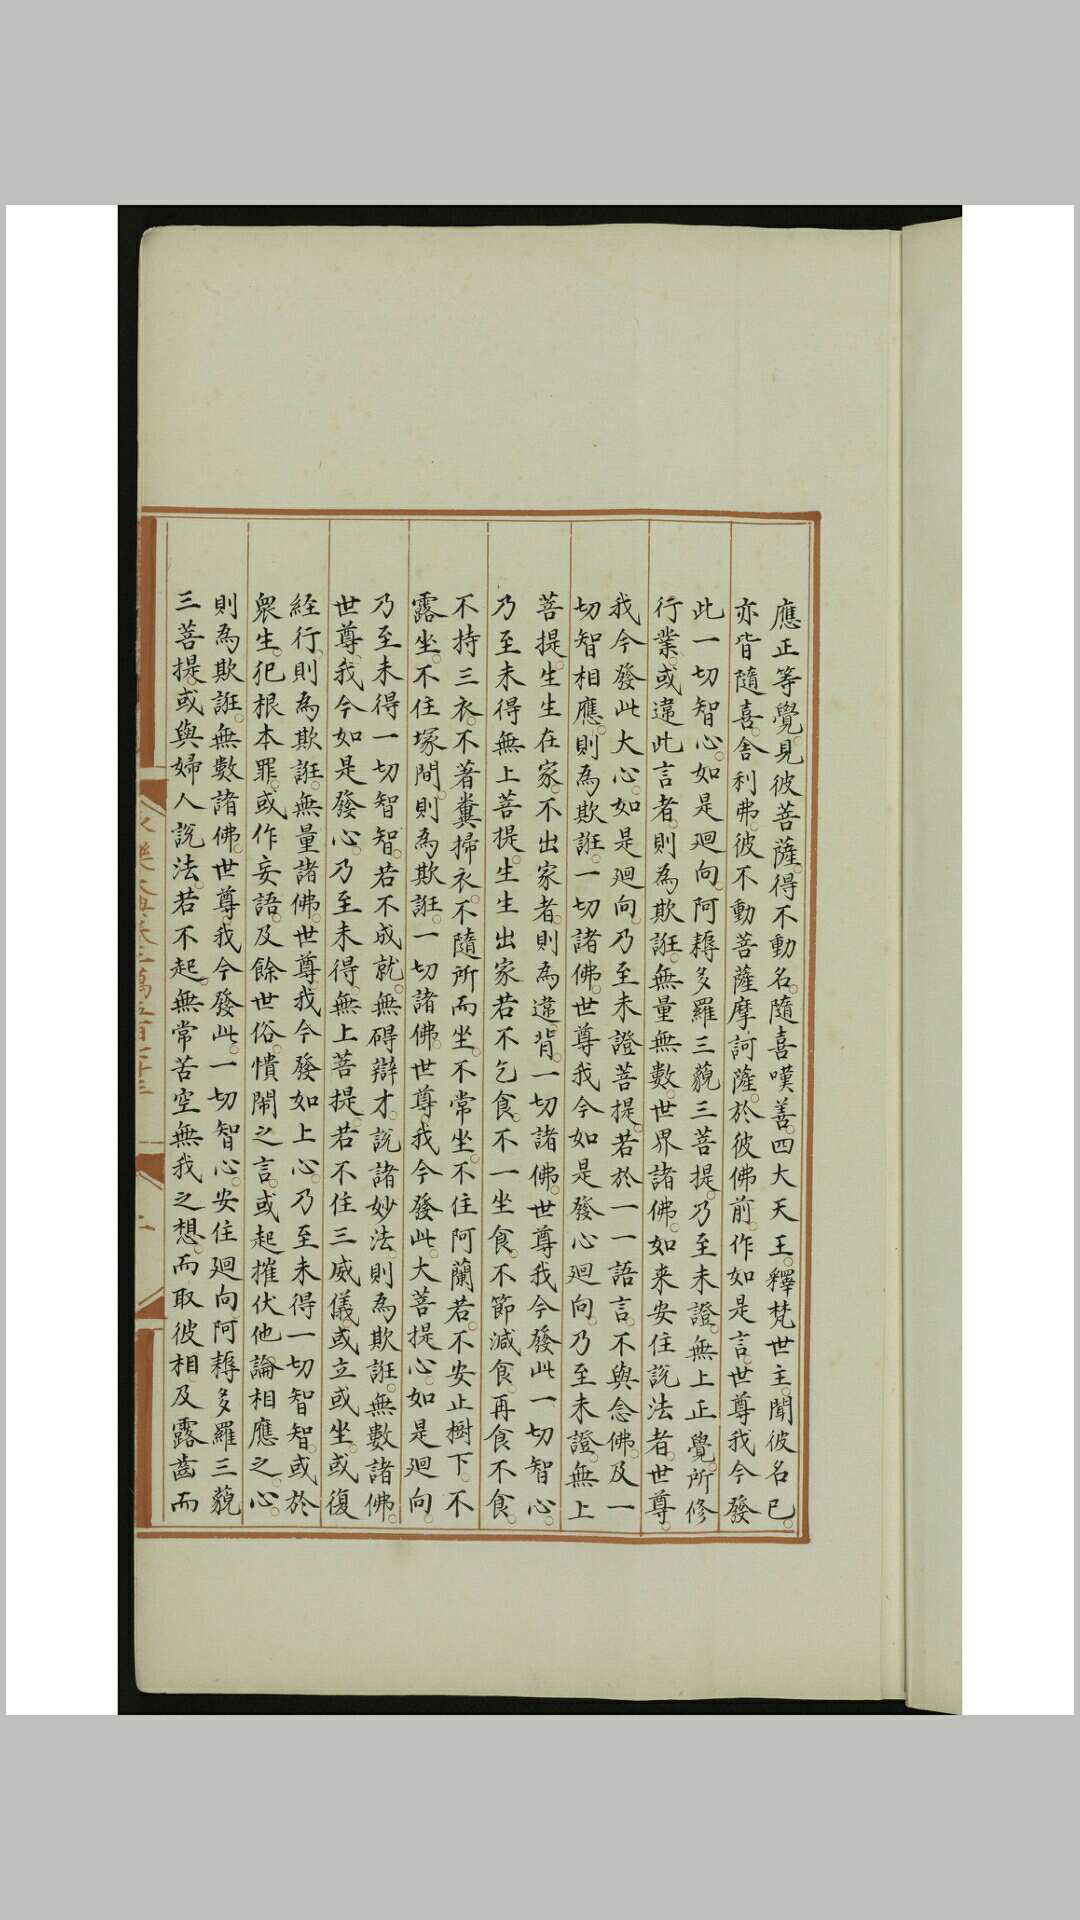 應正等覺。見彼菩薩。得不動名。隨喜嘆善。四大天王。釋梵世主。聞彼名已。
亦皆隨喜。舍利弗。彼不動菩薩摩訶薩。於彼佛前。作如是言。世尊我今發
此一切智心。如是廻向。阿耨多羅三藐三菩提。乃至未證。無上正覺。所修
行業。或違此言者。則為欺誑。無量無數。世界諸佛。如来安住說法者。世尊。
我今發此大心。如是廻向。乃至未證菩提。若於一一語言。不與念佛。及一
切智相應。則為欺誑。一切諸佛。世尊我今如是發心廻向。乃至未證。無上
菩提。生生在家。不出家者。則為違背。一切諸佛。世尊我今發此一切智心。
乃至未得無上菩提。生生出家若不乞食。不一坐食。不節減食。再食不食。
不持三衣。不著糞掃衣。不隨所而坐。不常坐。不住阿蘭若。不安止樹下。不
露坐。不住塚間。則為欺誑。一切諸佛。世尊我今發此。大菩提心。如是廻向。
乃至未得一切智智。若不成就。無碍辯才。說諸妙法。則為欺誑。無數諸佛。
世尊。我今如是發心。乃至未得。無上菩提。若不住三威儀。或立或坐。或復
經行。則為欺誑。無量諸佛。世尊。我今發如上心。乃至未得一切智智。或於
衆生。犯根本罪。或作妄語。及餘世俗。憒鬧之言。或起摧伏他論相應之心。
則為欺誑。無數諸佛。世尊我今發此。一切智心。安住廻向。阿耨多羅三藐
三菩提。或與婦人說法。若不起。無常苦空無我之想。而取彼相。及露齒而